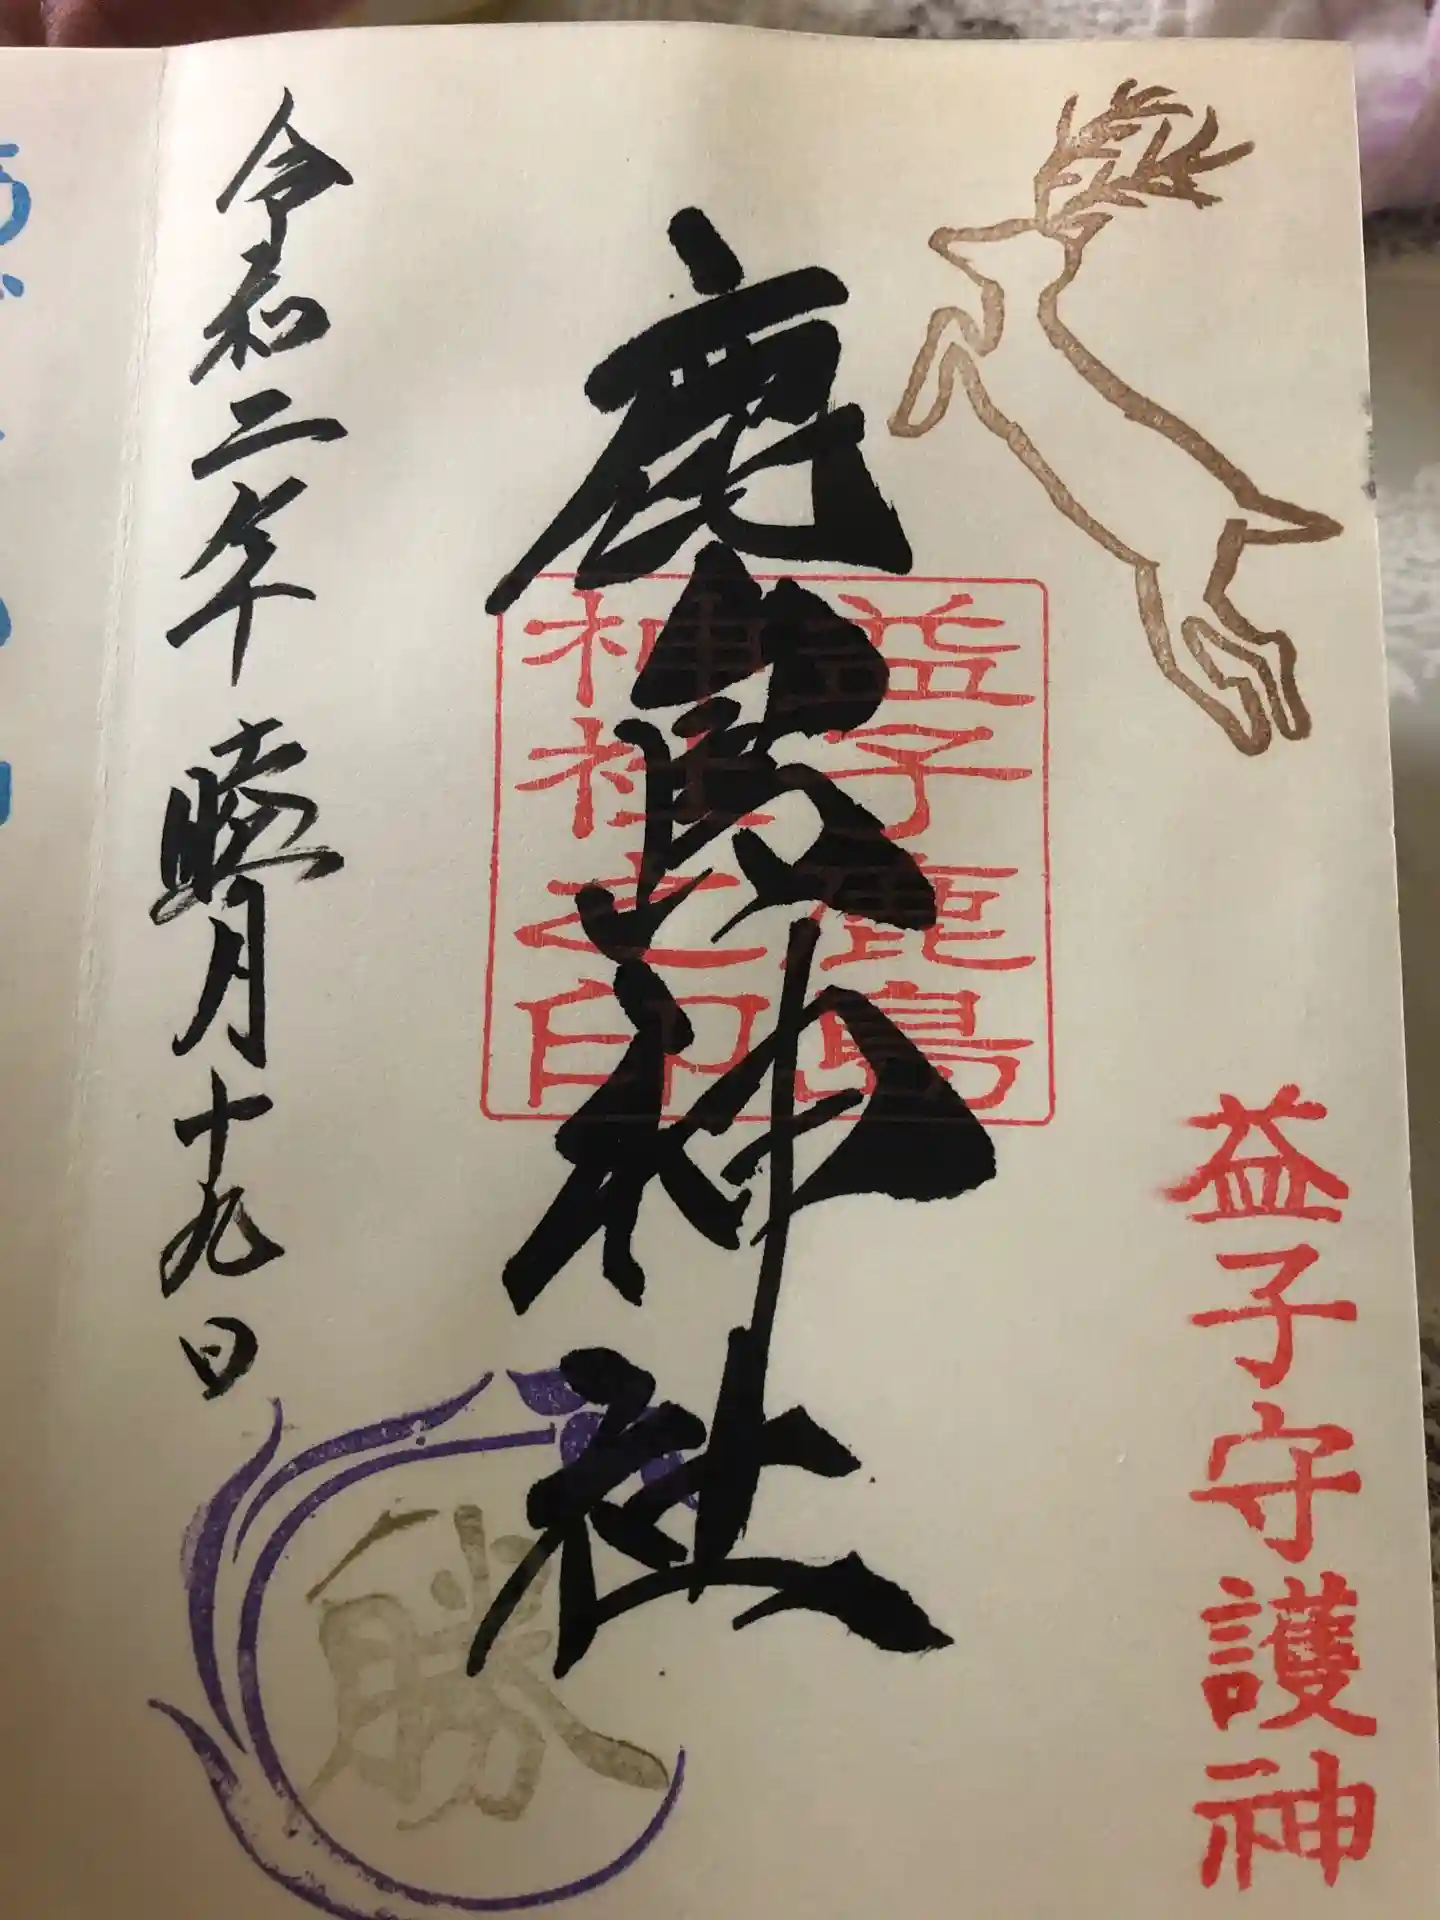 益子守護神
鹿島神社
益子鹿島
神社之印
令和二年 睦月十九日
勝